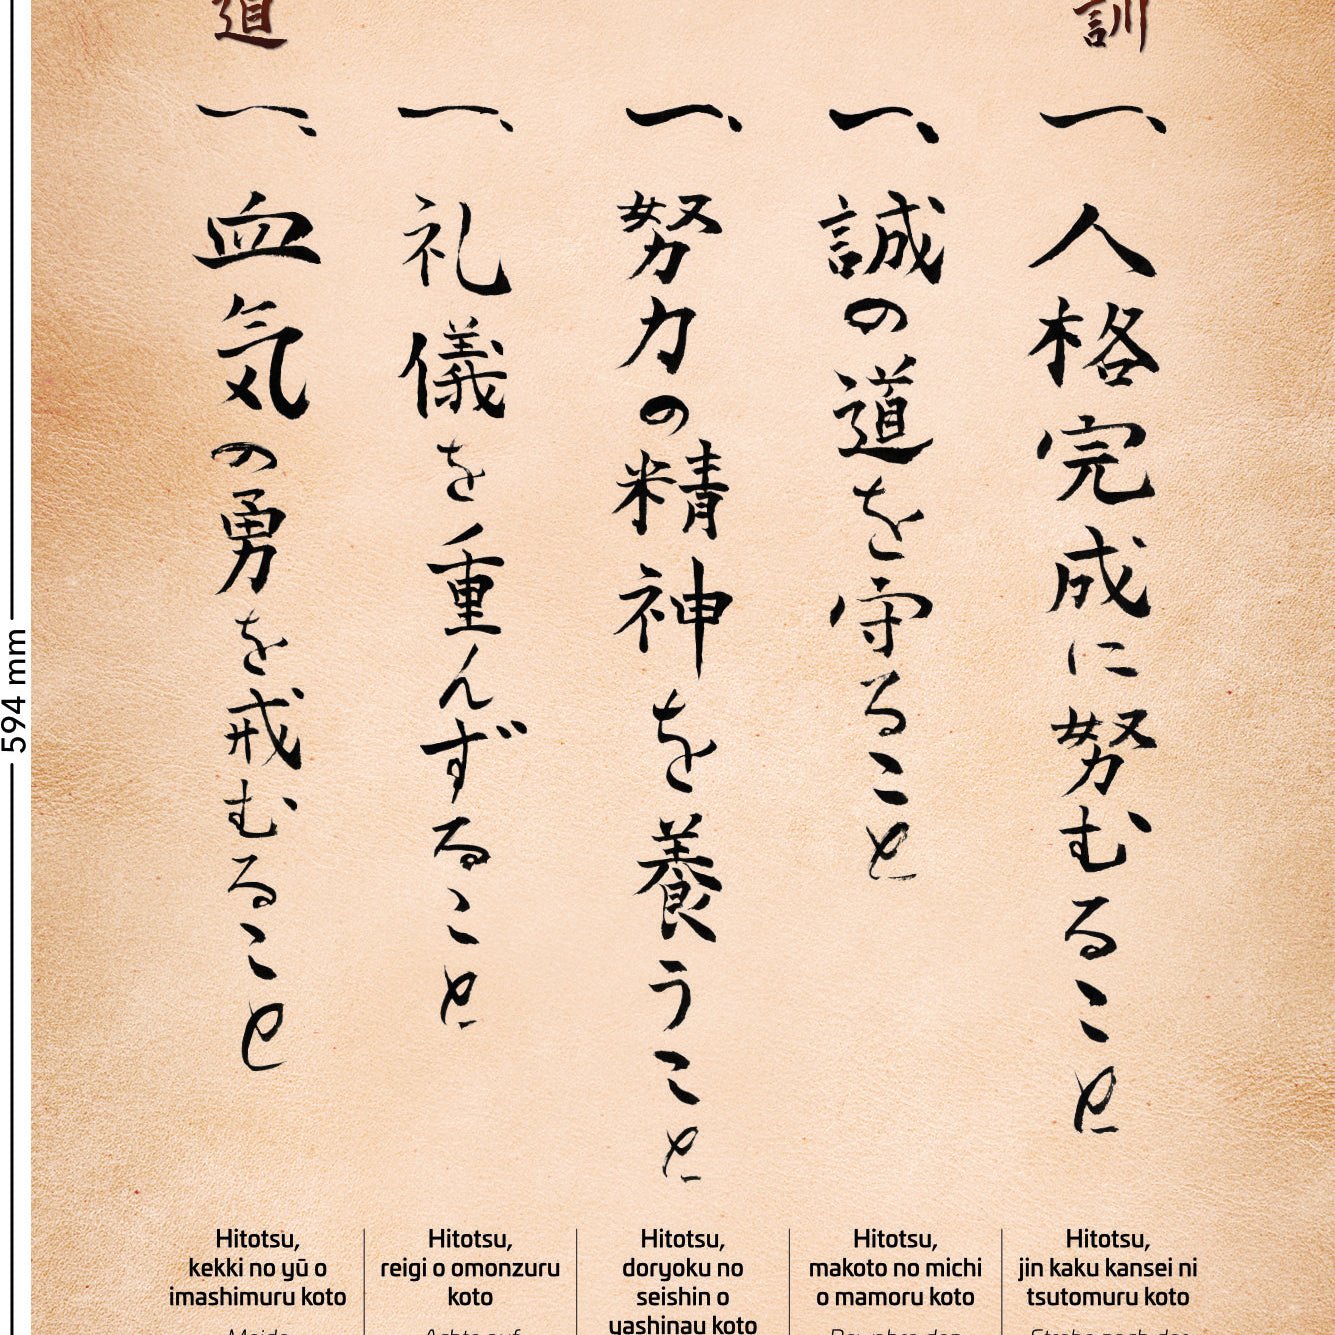 道 訓
一、人格完成に努むること
一、誠の道を守ること
一、努力の精神を養うこと
一、礼儀を重んずること
一、血気の勇を戒むること
594 mm
Hitotsu,
kekki no yū o
imashimuru koto
Hitotsu,
reigi o omonzuru
koto
Hitotsu,
doryoku no
seishin o
yashinau koto
Hitotsu,
makoto no michi
o mamoru koto
Hitotsu,
jin kaku kansei ni
tsutomuru koto